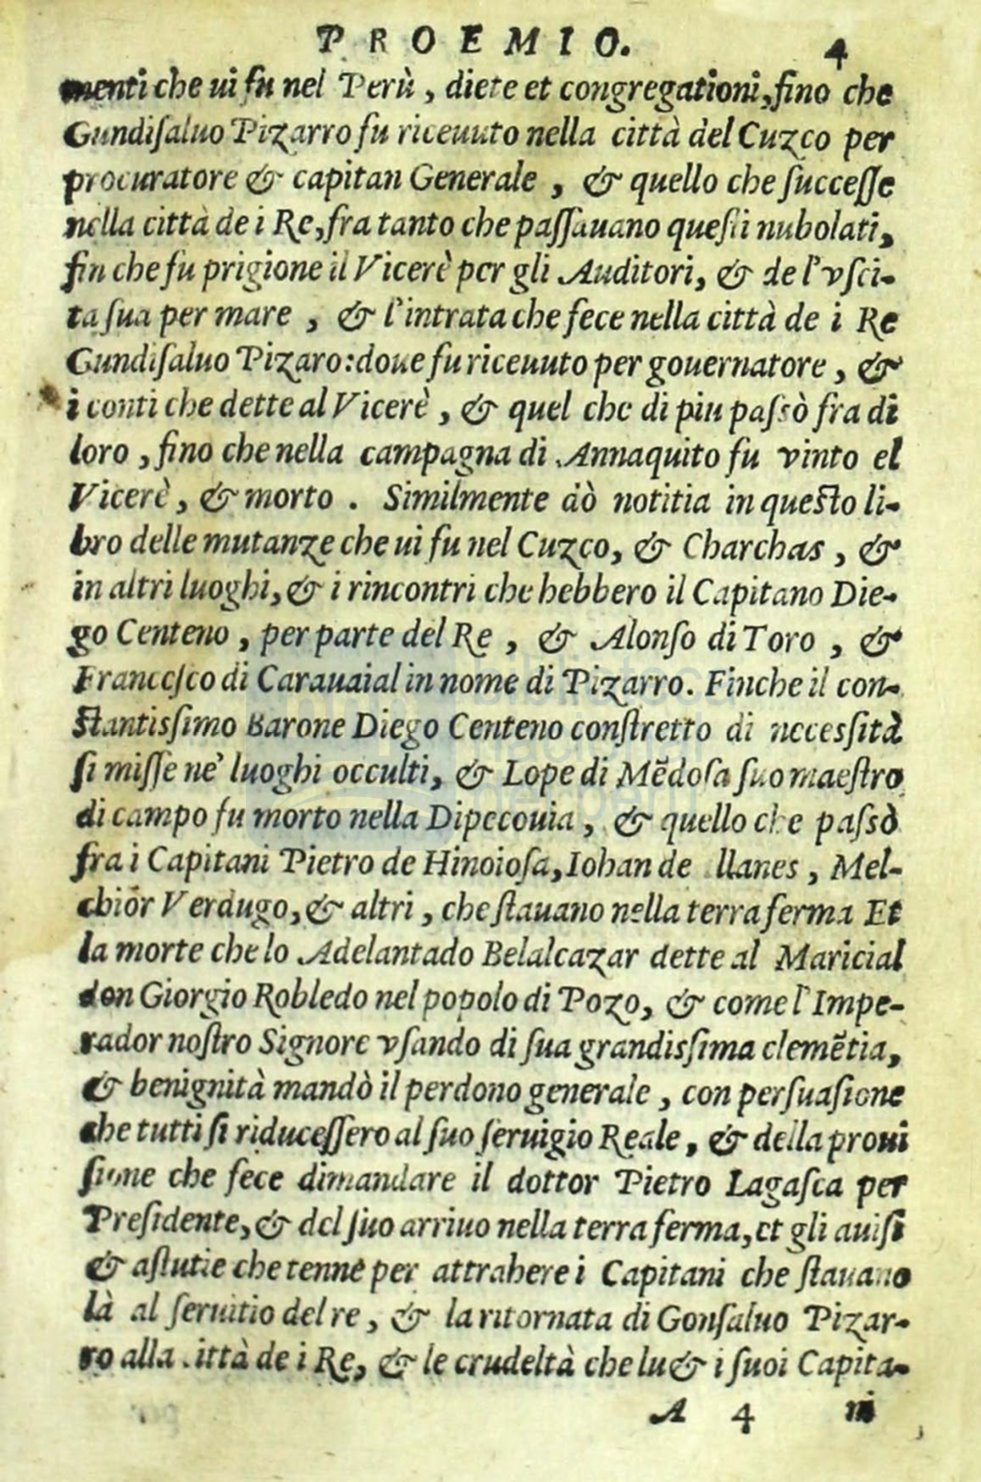 PROEMIO. 4
menti che ui fu nel Perù, diete et congregationi, fino che
Gundiſaluo Pizarro fu riceuuto nella città del Cuzco per
procuratore & capitan Generale, & quello che ſucceſſe
nella città de i Re, fra tanto che paſſauano queſti nubolati,
fin che fu prigione il Vicerè per gli Auditori, & de l'vſci-
ta ſua per mare, & l'intrata che fece nella città de i Re
Gundiſaluo Pizaro: doue fu riceuuto per gouernatore, &
i conti che dette al Vicerè, & quel che di piu paſsò fra di
loro, fino che nella campagna di Annaquito fu vinto el
Vicerè, & morto. Similmente dò notitia in queſto li-
bro delle mutanze che ui fu nel Cuzco, & Charchas, &
in altri luoghi, & i rincontri che hebbero il Capitano Die-
go Centeno, per parte del Re, & Alonſo di Toro, &
Franceſco di Carauaial in nome di Pizarro. Finche il con-
ſtantisſimo Barone Diego Centeno conſtretto di necesſità
ſi miſſe ne' luoghi occulti, & Lope di Mẽdoſa ſuo maeſtro
di campo fu morto nella Dipecouia, & quello che paſsò
fra i Capitani Pietro de Hinoioſa, Iohan de llanes, Mel-
chiór Verdugo, & altri, che ſtauano nella terra ferma Et
la morte che lo Adelantado Belalcazar dette al Maricial
don Giorgio Robledo nel popolo di Pozo, & come l'Impe-
rador noſtro Signore vſando di ſua grandisſima clemẽtia,
& benignità mandò il perdono generale, con perſuaſione
che tutti ſi riduceſſero al ſuo ſeruigio Reale, & della proui
ſione che fece dimandare il dottor Pietro Lagaſca per
Preſidente, & del ſuo arriuo nella terra ferma, et gli auiſi
& aſtutie che tenne per attrahere i Capitani che ſtauano
là al ſeruitio del re, & la ritornata di Gonſaluo Pizar-
ro alla città de i Re, & le crudeltà che lu & i ſuoi Capita-
A 4 ni